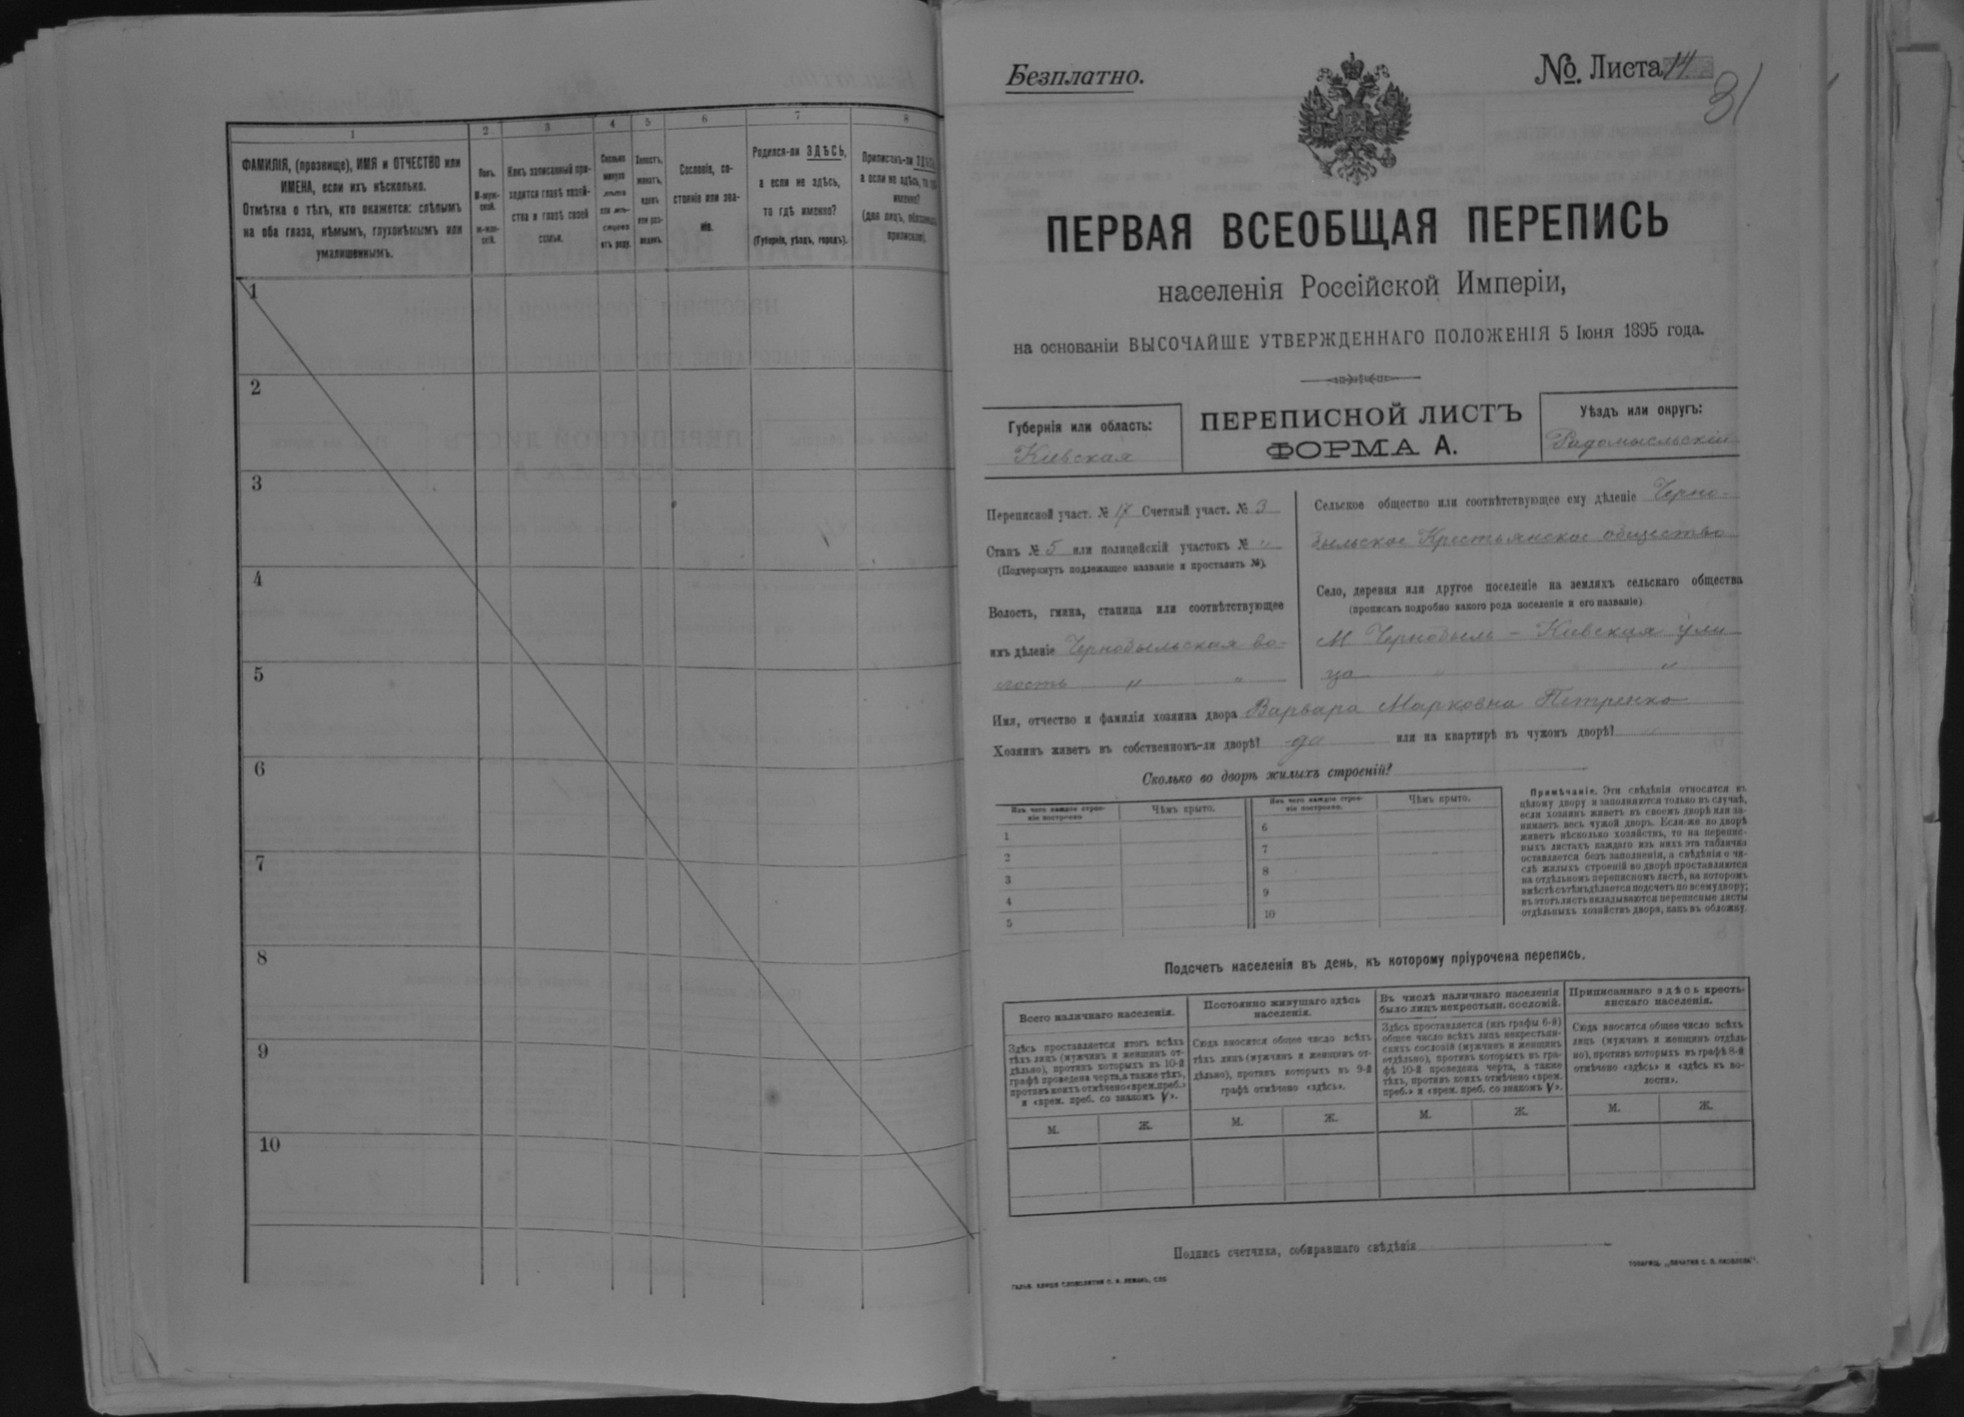 1 2 3 4 5 6 7 8
ФАМИЛІЯ, (прозвище), ИМЯ и ОТЧЕСТВО или
ИМЕНА, если ихъ нѣсколько.
Отмѣтка о тѣхъ, кто окажется: слѣпымъ
на оба глаза, нѣмымъ, глухонѣмымъ или
умалишеннымъ.
Полъ.
М-муж-
ской.
Ж-жен-
скій.
Какъ записанный при-
ходится главѣ хозяй-
ства и главѣ своей
семьи.
Сколько
минуло
лѣтъ
или мѣ-
сяцевъ
отъ роду.
Холостъ,
женатъ,
вдовъ
или раз-
веденъ.
Сословіе, со-
стояніе или зва-
ніе.
Родился-ли ЗДѢСЬ,
а если не здѣсь,
то гдѣ именно?
(Губернія, уѣздъ, городъ).
Приписанъ-ли ЗДѢСЬ,
а если не здѣсь, то гдѣ
именно?
(для лицъ, обязанныхъ
припискою).
1
2
3
4
5
6
7
8
9
10
Безплатно.
№. Листа 14
31
ПЕРВАЯ ВСЕОБЩАЯ ПЕРЕПИСЬ
населенія Россійской Имперіи,
на основаніи ВЫСОЧАЙШЕ УТВЕРЖДЕННАГО ПОЛОЖЕНІЯ 5 Іюня 1895 года.
Губернія или область:
Кіевская
ПЕРЕПИСНОЙ ЛИСТЪ
ФОРМА А.
Уѣздъ или округъ:
Радомысльскій
Переписной участ. № 17 Счетный участ. № 3
Станъ № 5 или полицейскій участокъ № "
(Подчеркнуть подлежащее названіе и проставить №).
Волость, гмина, станица или соотвѣтствующее
ихъ дѣленіе Чернобыльская во-
лость " "
Сельское общество или соотвѣтствующее ему дѣленіе Черно-
быльское Крестьянское общество
Село, деревня или другое поселеніе на земляхъ сельскаго общества
(прописать подробно какого рода поселеніе и его названіе)
М Чернобыль – Кіевская ули
ца " "
Имя, отчество и фамилія хозяина двора Варвара Марковна Петренко
Хозяинъ живетъ въ собственномъ-ли дворѣ? да или на квартирѣ въ чужомъ дворѣ? "
Сколько во дворѣ жилыхъ строеній?
Изъ чего каждое строе-
ніе построено
Чѣмъ крыто.
Изъ чего каждое строе-
ніе построено.
Чѣмъ крыто.
1 6
2 7
3 8
4 9
5 10
Примѣчаніе. Эти свѣдѣнія относятся къ
цѣлому двору и заполняются только въ случаѣ,
если хозяинъ живетъ въ своемъ дворѣ или за-
нимаетъ весь чужой дворъ. Если-же во дворѣ
живетъ нѣсколько хозяйствъ, то на перепис-
ныхъ листахъ каждаго изъ нихъ эта табличка
оставляется безъ заполненія, а свѣдѣнія о чи-
слѣ жилыхъ строеній во дворѣ проставляются
на отдѣльномъ переписномъ листѣ, на которомъ
вмѣстѣ съ тѣмъ дѣлается подсчетъ по всему двору;
въ этотъ листъ вкладываются переписные листы
отдѣльныхъ хозяйствъ двора, какъ въ обложку.
Подсчетъ населенія въ день, къ которому пріурочена перепись.
Всего наличнаго населенія.
Здѣсь проставляется итогъ всѣхъ
тѣхъ лицъ (мужчинъ и женщинъ от-
дѣльно), противъ которыхъ въ 10-й
графѣ проведена черта, а также тѣхъ,
противъ коихъ отмѣчено «врем. преб.»
и «врем. преб. со знакомъ V».
Постоянно живущаго здѣсь
населенія.
Сюда вносится общее число всѣхъ
тѣхъ лицъ (мужчинъ и женщинъ от-
дѣльно), противъ которыхъ въ 9-й
графѣ отмѣчено «здѣсь».
Въ числѣ наличнаго населенія
было лицъ некрестьян. сословій.
Здѣсь проставляется (изъ графы 6-й)
общее число всѣхъ лицъ некрестьян-
скихъ сословій (мужчинъ и женщинъ
отдѣльно), противъ которыхъ въ гра-
фѣ 10-й проведена черта, а также
тѣхъ, противъ коихъ отмѣчено «врем.
преб.» и «врем. преб. со знакомъ V».
Приписаннаго здѣсь кресть-
янскаго населенія.
Сюда вносится общее число всѣхъ
лицъ (мужчинъ и женщинъ отдѣль-
но), противъ которыхъ въ графѣ 8-й
отмѣчено «здѣсь» и «здѣсь въ во-
лости».
М. Ж. М. Ж. М. Ж. М. Ж.
Подпись счетчика, собиравшаго свѣдѣнія